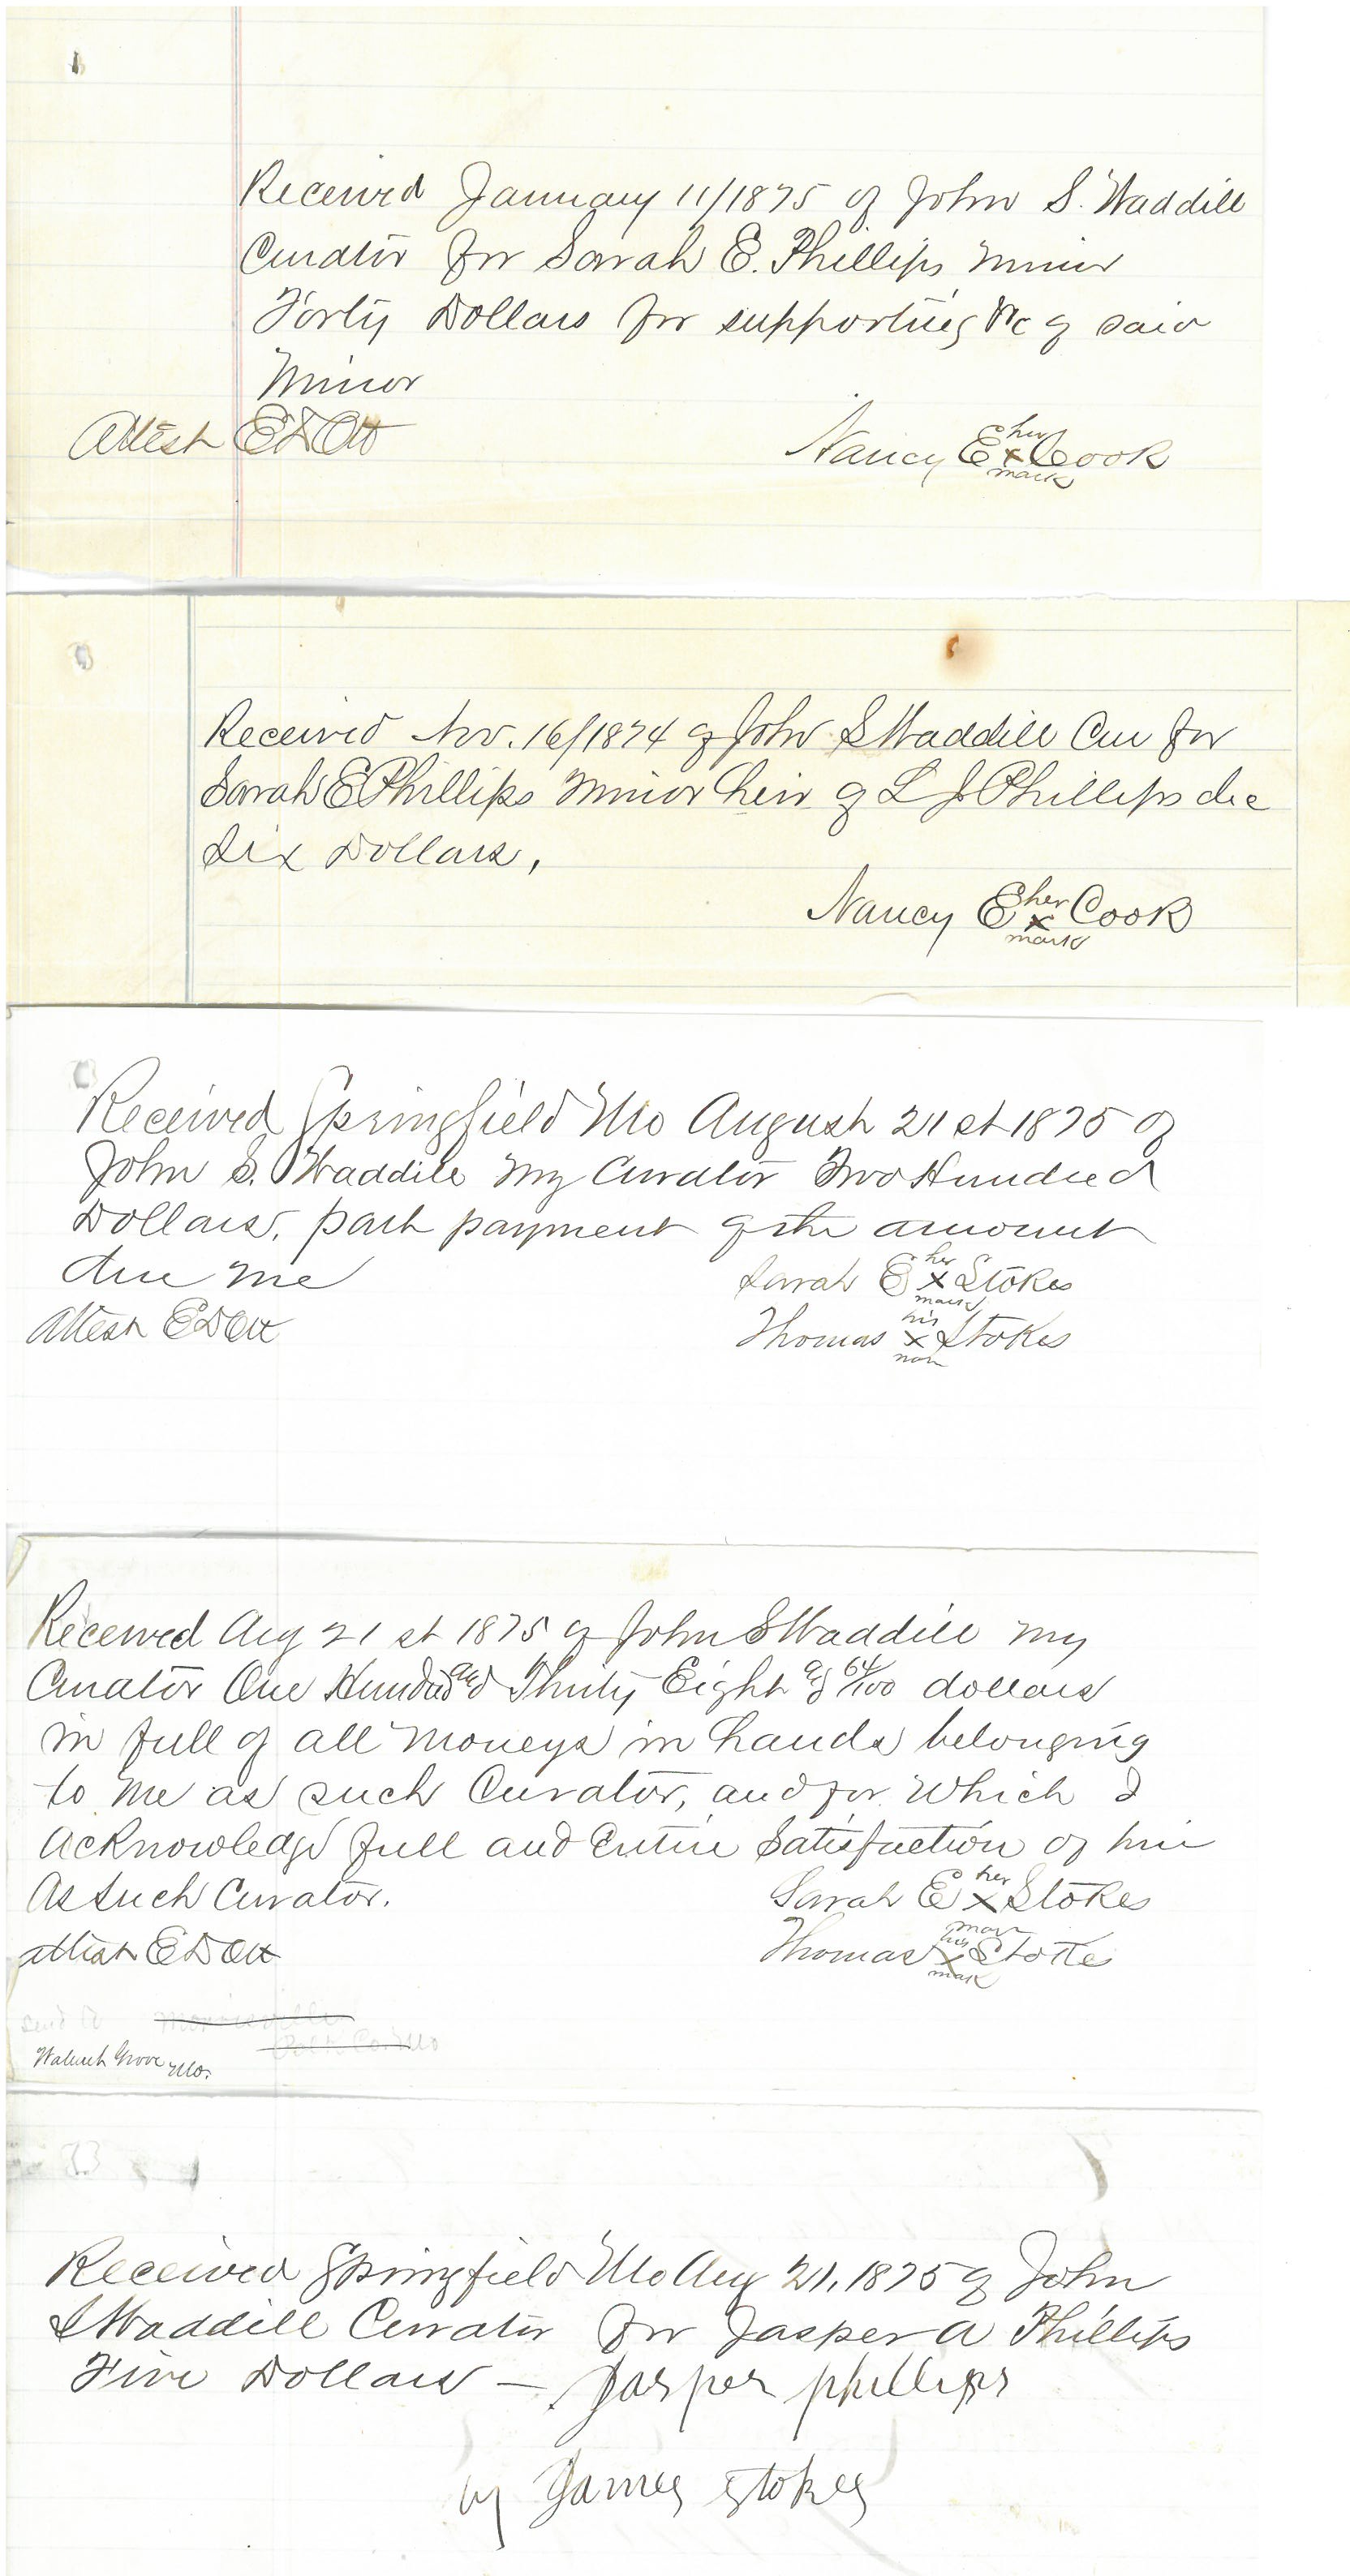 Received January 11/1875 of John S. Waddill
Curator for Sarah E. Phillips minor
Forty Dollars for supporting &c of said
Minor
Attest E D Ott
her
Nancy E x Cook
mark
Received Nov. 16/1874 of John S Waddill Cur for
Sarah E Phillips minor heir of L J Phillips dec
Six Dollars,
her
Nancy E x Cook
mark
Received Springfield Mo August 21st 1875 of
John S. Waddill my Curator Two Hundred
Dollars, part payment of the amount
due me
her
Sarah E x Stokes
mark
Attest E D Ott
his
Thomas x Stokes
mark
Received Aug 21st 1875 of John S Waddill my
Curator One Hundred and Thirty Eight & 64/100 dollars
in full of all moneys in hands belonging
to me as such Curator, and for which I
acknowledge full and entire satisfaction of him
As such Curator.
her
Sarah E x Stokes
mark
attest E D Ott
his
Thomas x Stokes
mark
send to
Walnut Grove Mo.
Received Springfield Mo Aug 21, 1875 of John
S Waddill Curator for Jasper A Phillips
Five Dollars — Jasper phillips
by James Stokes